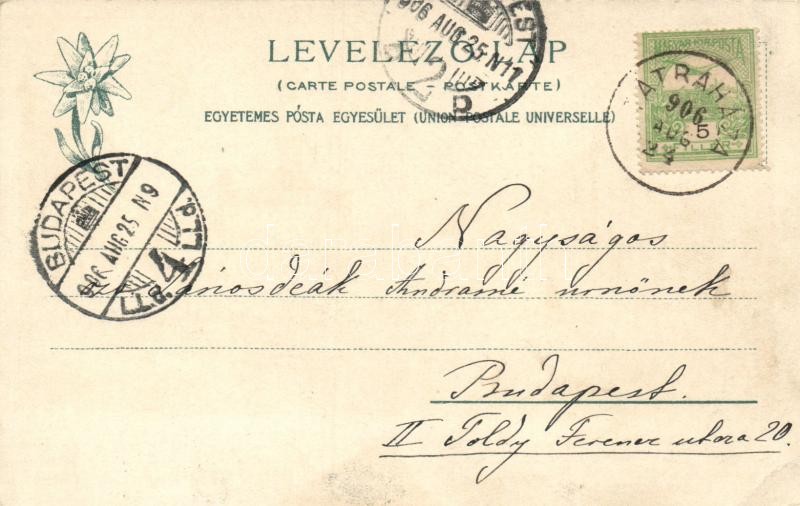 LEVELEZŐ-LAP
(CARTE POSTALE - POSTKARTE)
EGYETEMES PÓSTA EGYESÜLET (UNION POSTALE UNIVERSELLE)
906 AUG. 25. N11
ÁTRAHÁZA
906
AUG
24
5
BUDAPEST
906 AUG 25 N9
4
Nagyságos
Jánosdeák Andrásné urnőnek
Budapest.
II Toldy Ferencz utcza 20.